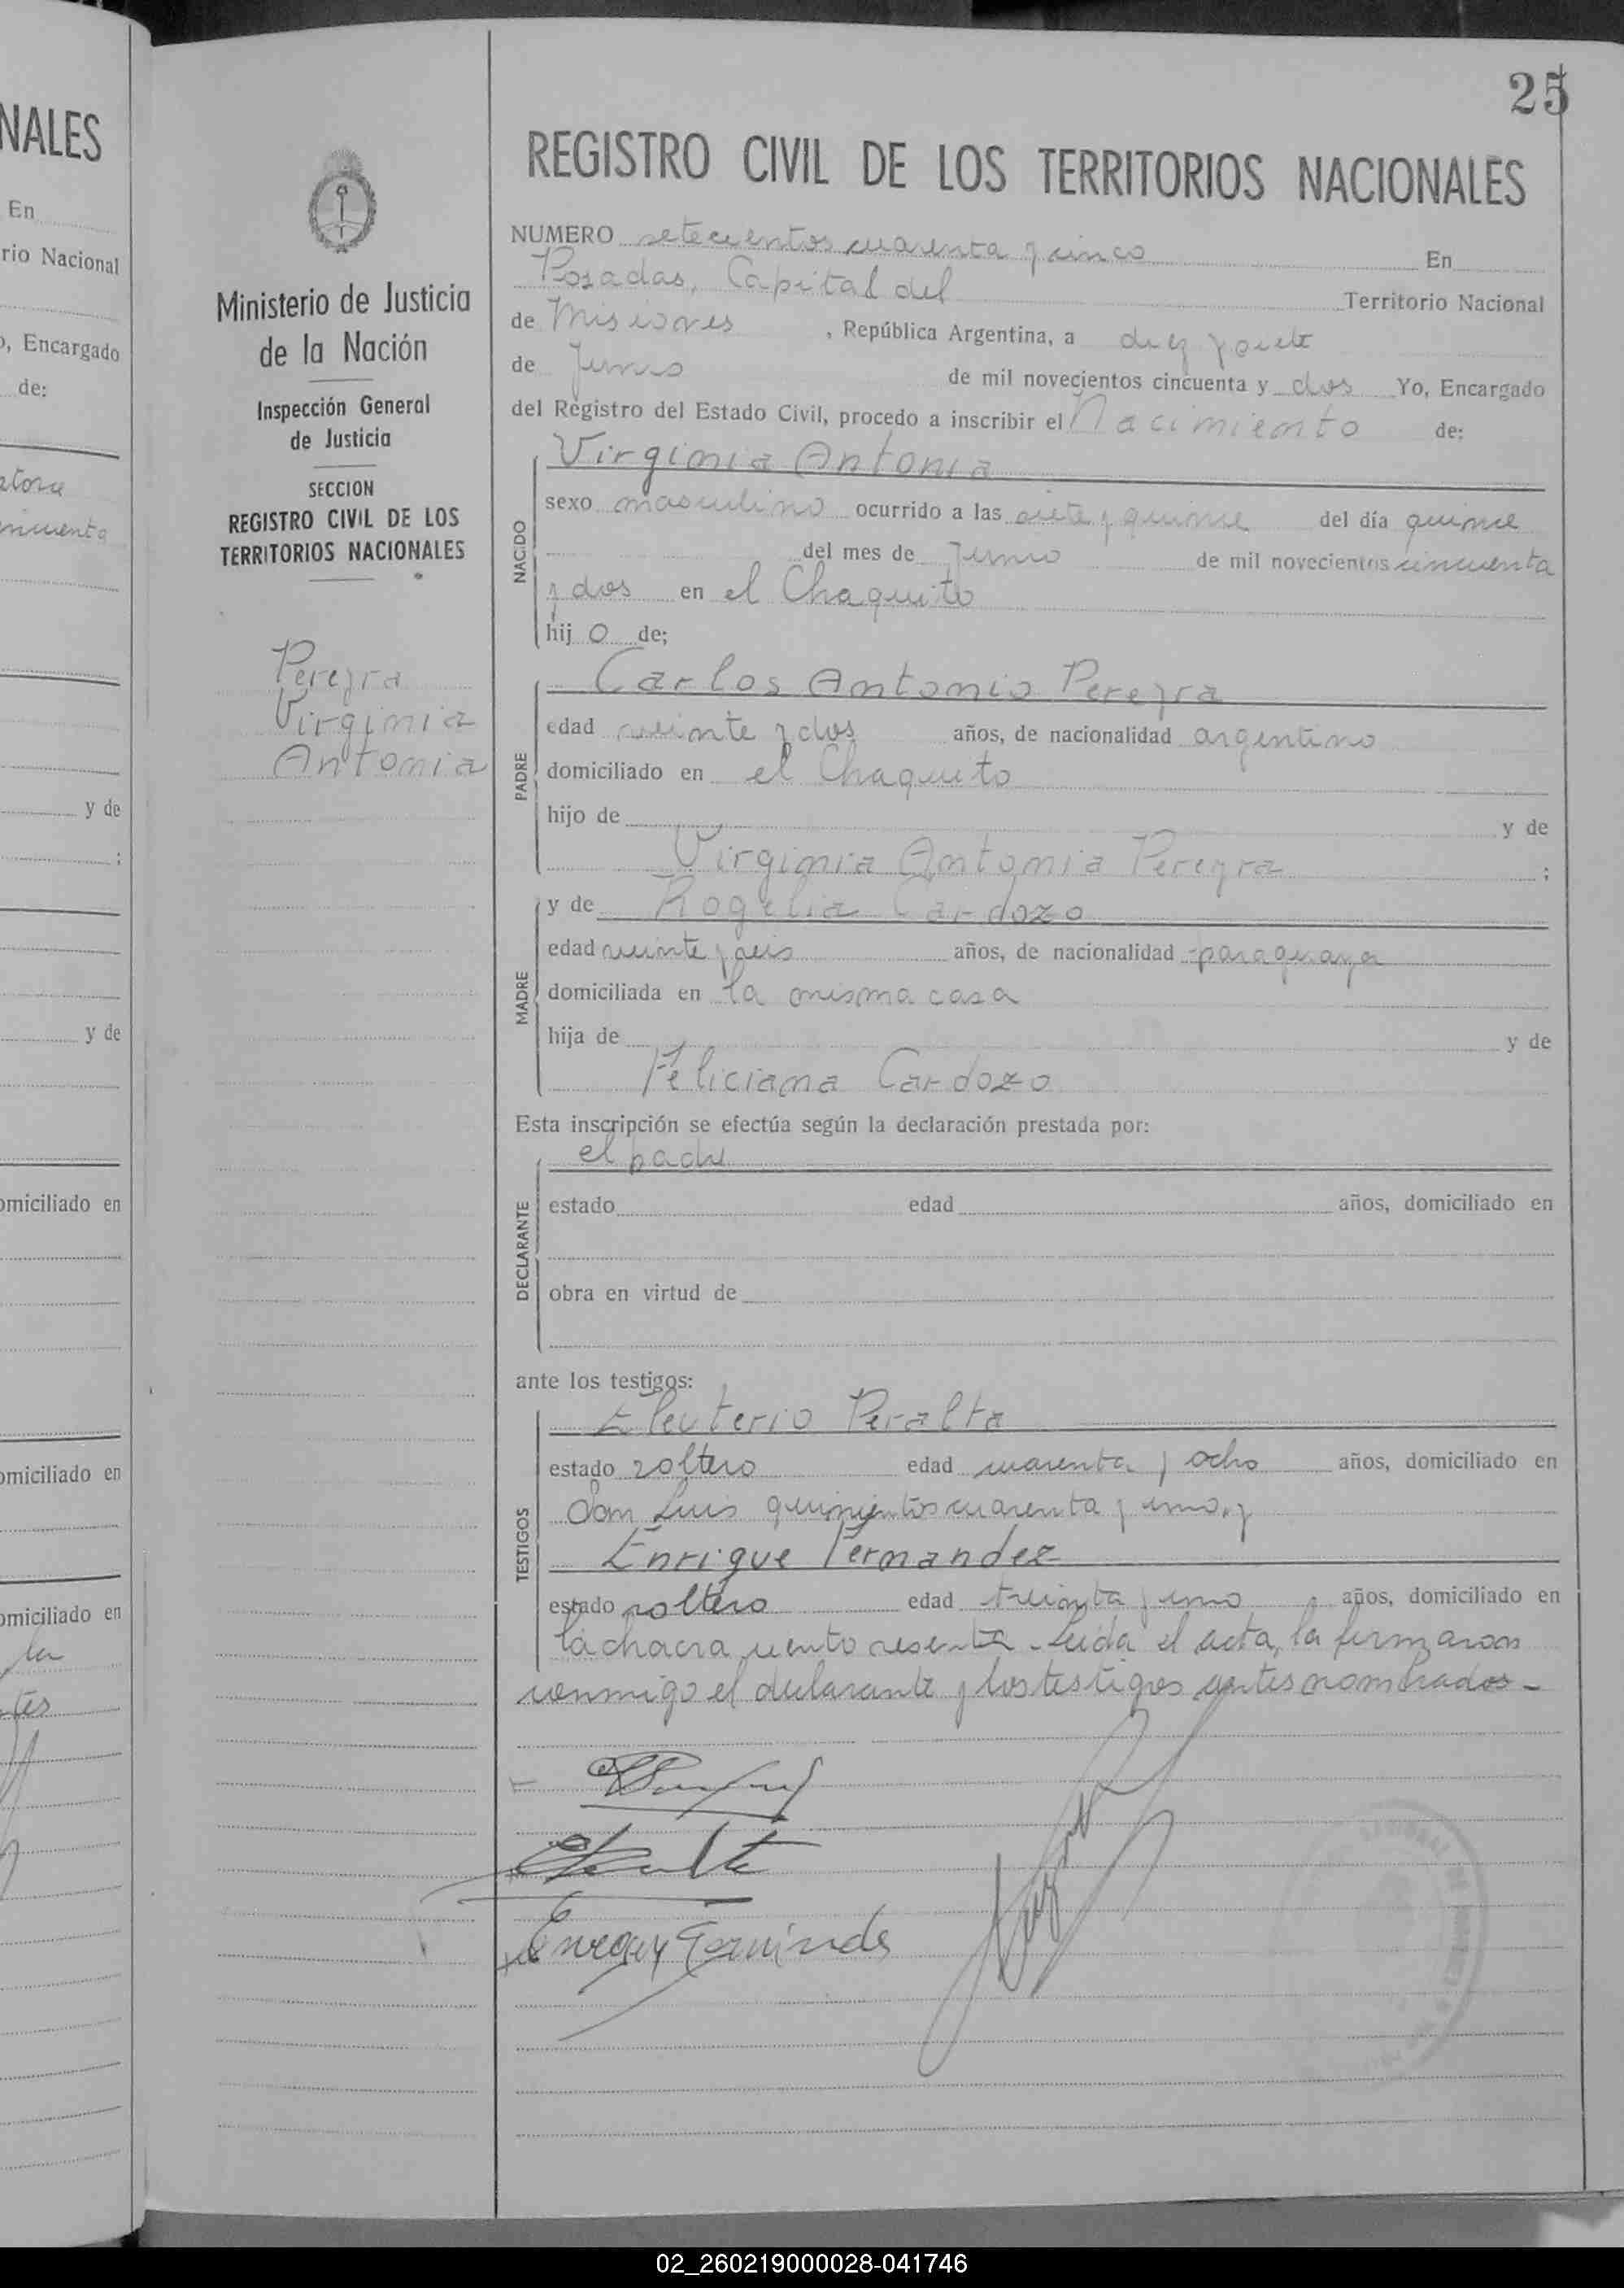 NALES
En
rio Nacional
o, Encargado
de:
y de
;
y de
omiciliado en
omiciliado en
omiciliado en
la
tes
Ministerio de Justicia
de la Nación
Inspección General
de Justicia
SECCION
REGISTRO CIVIL DE LOS
TERRITORIOS NACIONALES
Pereyra
Virginia
Antonia
25
REGISTRO CIVIL DE LOS TERRITORIOS NACIONALES
NUMERO setecientos cuarenta y cinco En
Posadas, Capital del Territorio Nacional
de Misiones , República Argentina, a diez y siete
de Junio de mil novecientos cincuenta y dos Yo, Encargado
del Registro del Estado Civil, procedo a inscribir el Nacimiento de:
Virginia Antonia
NACIDO
sexo masculino ocurrido a las siete y quince del día quince
del mes de Junio de mil novecientos cincuenta
y dos en el Chaquito
hij o de;
Carlos Antonio Pereyra
PADRE
edad veinte y dos años, de nacionalidad argentino
domiciliado en el Chaquito
hijo de y de
Virginia Antonia Pereyra ;
y de Rogelia Cardozo
MADRE
edad veinte y seis años, de nacionalidad paraguaya
domiciliada en la misma casa
hija de y de
Feliciana Cardozo
Esta inscripción se efectúa según la declaración prestada por:
el padre
DECLARANTE
estado edad años, domiciliado en
obra en virtud de
ante los testigos:
Eleuterio Peralta
TESTIGOS
estado soltero edad cuarenta y ocho años, domiciliado en
San Luis quinientos cuarenta y uno, y
Enrique Fernandez
estado soltero edad treinta y uno años, domiciliado en
la chacra ciento sesenta - Leida el acta, la firmaron
conmigo el declarante y los testigos antes nombrados -
02_260219000028-041746